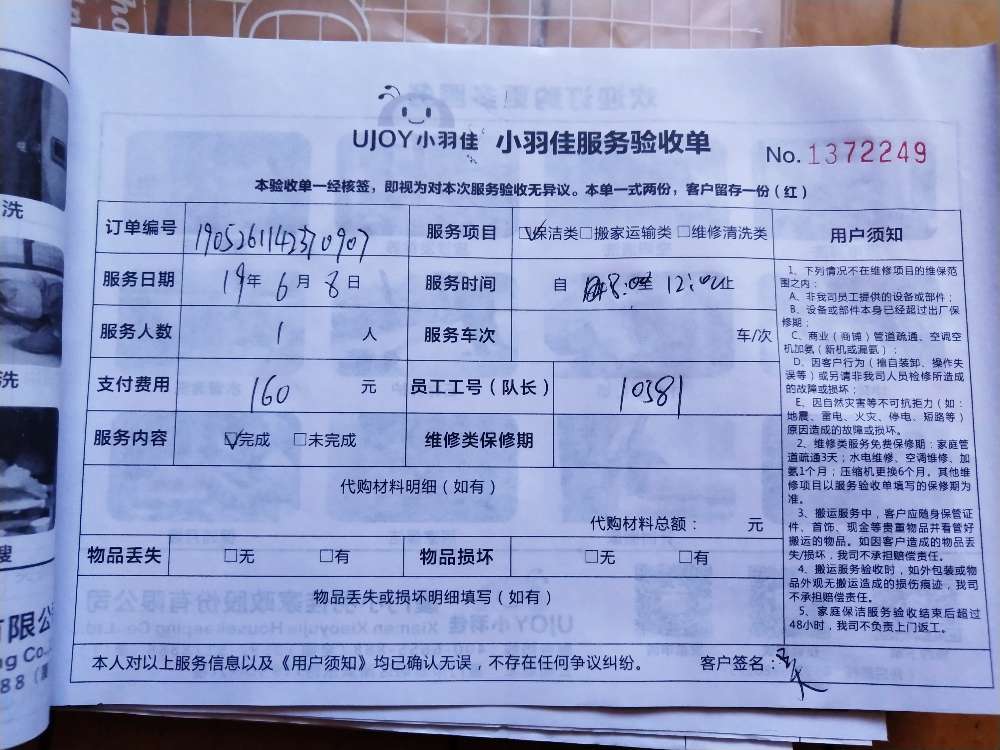 UJOY小羽佳 小羽佳服务验收单 No. 1372249
本验收单一经核签，即视为对本次服务验收无异议。本单一式两份，客户留存一份（红）
订单编号 1905261142370907 服务项目 ☑保洁类□搬家运输类□维修清洗类
服务日期 19年6月8日 服务时间 自 8:00至12:00止
服务人数 1 人 服务车次 车/次
支付费用 160 元 员工工号（队长） 10381
服务内容 ☑完成 □未完成 维修类保修期
代购材料明细（如有）
代购材料总额： 元
物品丢失 □无 □有 物品损坏 □无 □有
物品丢失或损坏明细填写（如有）
用户须知
1、下列情况不在维修项目的维保范
围之内：
A、非我司员工提供的设备或部件；
B、设备或部件本身已经超过出厂保
修期；
C、商业（商铺）管道疏通、空调空
机加氨（新机或漏氨）；
D、因客户行为（擅自装卸、操作失
误等）或另请非我司人员检修所造成
的故障或损坏；
E、因自然灾害等不可抗拒力（如：
地震、雷电、火灾、停电、短路等）
原因造成的故障或损坏。
2、维修类服务免费保修期：家庭管
道疏通3天；水电维修、空调维修、加
氨1个月；压缩机更换6个月。其他维
修项目以服务验收单填写的保修期为
准。
3、搬运服务中，客户应随身保管证
件、首饰、现金等贵重物品并看管好
搬运的物品。如因客户造成的物品丢
失/损坏，我司不承担赔偿责任。
4、搬运服务验收时，如外包装或物
品外观无搬运造成的损伤痕迹，我司
不承担赔偿责任。
5、家庭保洁服务验收结束后超过
48小时，我司不负责上门返工。
本人对以上服务信息以及《用户须知》均已确认无误，不存在任何争议纠纷。 客户签名：
洗
洗
有限公
ng Co.
88（